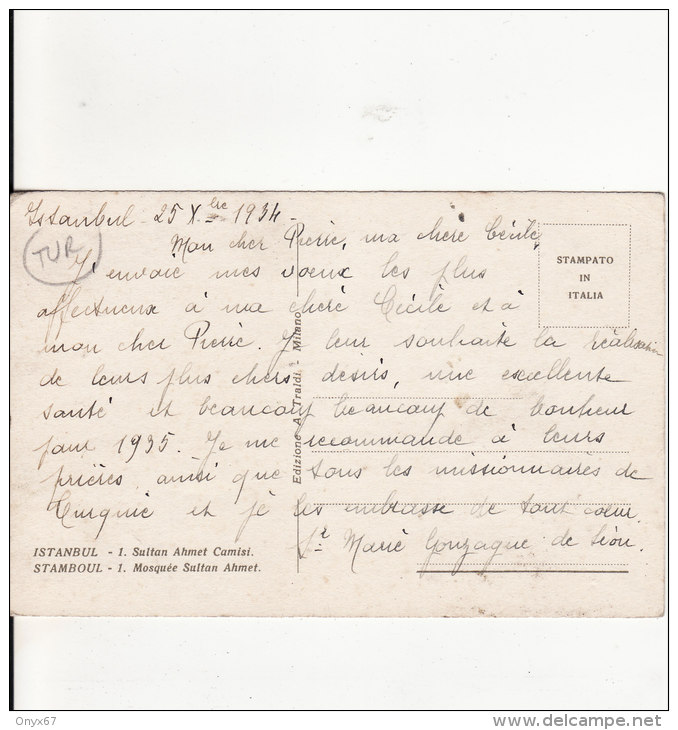 Istanbul - 25 Xbre 1934 -
Mon cher Pierre, ma chère Cécile,
TUR
J'envoie mes voeux les plus
affectueux à ma chère Cécile et à
mon cher Pierre. Je leur souhaite la réalisation
de leurs plus chers désirs, une excellente
santé et beaucoup beaucoup de bonheur
pour 1935. Je me recommande à leurs
prières ainsi que tous les missionnaires de
Turquie et je les embrasse de tout coeur.
Sr Marie Gonzague de Sion.
STAMPATO
IN
ITALIA
Edizione A. Traldi - Milano
ISTANBUL - 1. Sultan Ahmet Camisi.
STAMBOUL - 1. Mosquée Sultan Ahmet.
Onyx67
www.delcampe.net